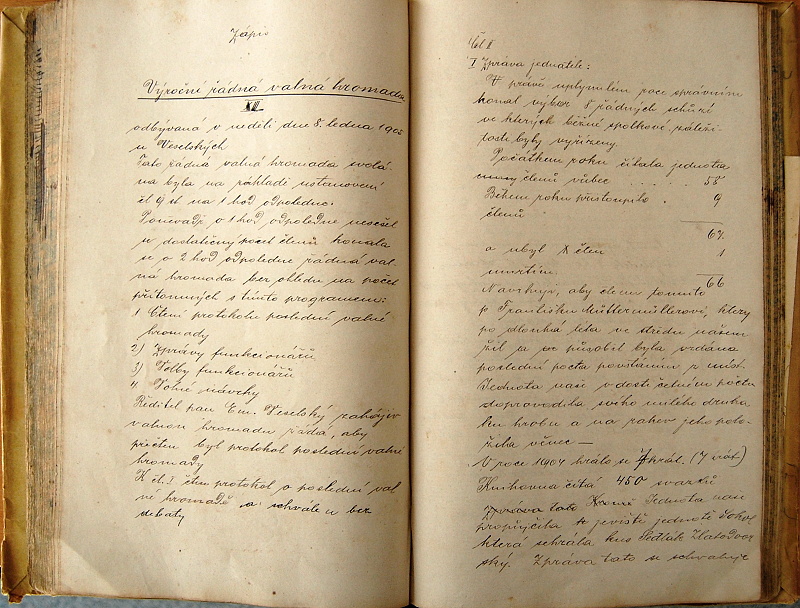 Zápis
Výroční řádná valná hromada
XII
odbývaná v neděli dne 8. ledna 1905
u Veselských
Tato řádná valná hromada svolá-
na byla na základě ustanovení
čl 9 st na 1 hod odpoledne.
Poněvadž o 1 hod odpoledne nesešel
se dostatečný počet členů konala
se o 2 hod odpoledne řádná val-
ná hromada bez ohledu na počet
přítomných s tímto programem:
1 Čtení protokolu poslední valné
hromady
2) Zprávy funkcionářů
3) Volby funkcionářů
4 Volné návrhy
Ředitel pan Em. Veselský zahájiv
valnou hromadu žádá, aby
přečten byl protokol poslední valné
hromady
K čl. I. čten protokol o poslední val
né hromadě a schválen bez
debaty
Čl II
I Zpráva jednatele:
V právě uplynulém roce správním
konal výbor 8 řádných schůzí
ve kterých běžné spolkové záleži
tosti byly vyřízeny.
Počátkem roku čítala jednota
členů vůbec . . . . 58
Během roku přistoupilo . 9
členů
67.
a ubyl 1 člen 1
úmrtím
66
Navrhuji, aby členu tomuto
p Františku Müttermütterovi, který
po dlouhá léta ve středu našem
žil a působil byla vzdána
poslední pocta povstáním z míst.
Jednota naše v dosti četném počtu
doprovodila svého milého druha
ku hrobu a na rakev jeho polo-
žila věnec —
V roce 1904 hrálo se 7 krát. (7 )
Knihovna čítá 450 svazků
Zpráva tato Jednota naše
propůjčila jeviště jednotě Sokol
která sehrála kus Sedlák Zlatodvor
ský. Zpráva tato se schvaluje